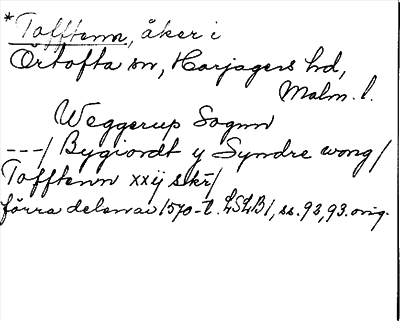 *Tofftenn, åker i
Örtofta sn, Harjagers hd,
Malm. l.
Weggerup Sognn
---/ Bygiordt y Syndre wong/
Tofftenn xxij skr/
förra delen av 1570-t. LSLB1, ss. 92, 93. orig.